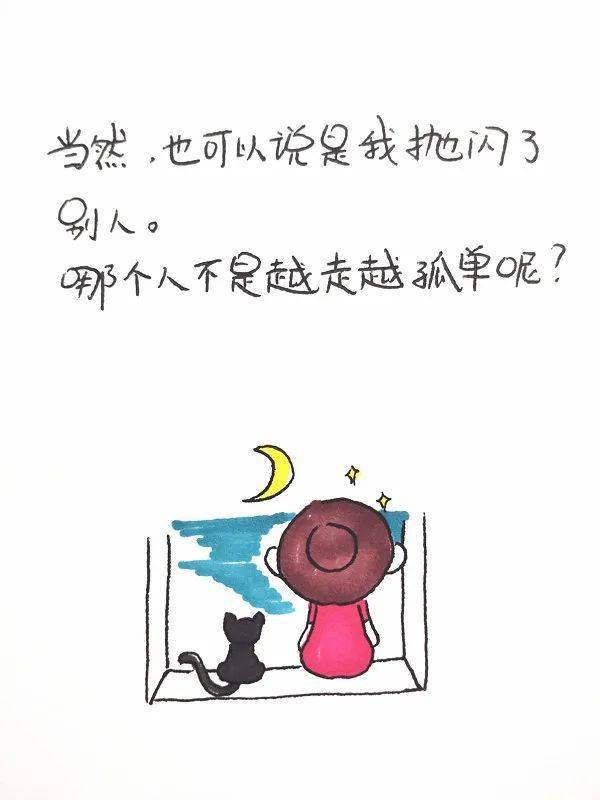 当然，也可以说是我抛闪了
别人。
哪个人不是越走越孤单呢？